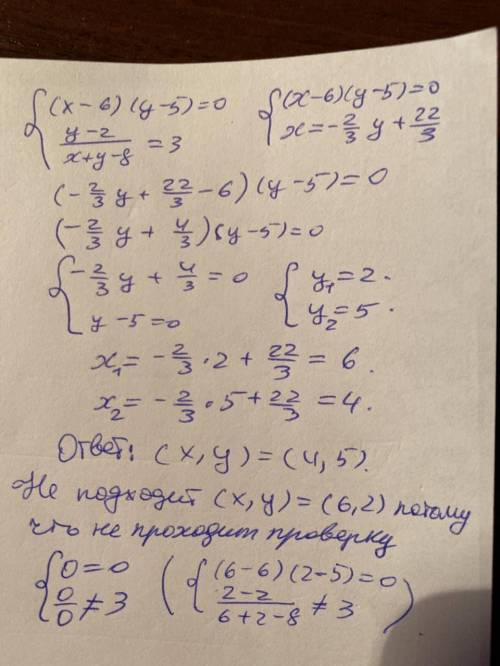 { (x-6)(y-5)=0   { (x-6)(y-5)=0
{ \frac{y-2}{x+y-8} = 3   { x=-\frac{2}{3}y+\frac{22}{3}
(-\frac{2}{3}y+\frac{22}{3}-6)(y-5)=0
(-\frac{2}{3}y+\frac{4}{3})(y-5)=0
{ -\frac{2}{3}y+\frac{4}{3}=0   { y_1=2.
{ y-5=0   { y_2=5.
x_1=-\frac{2}{3}·2+\frac{22}{3}=6.
x_2=-\frac{2}{3}·5+\frac{22}{3}=4.
Ответ: (x,y)=(4,5).
Не подходит (x,y)=(6,2) потому
что не проходит проверку
{ 0=0   ( { (6-6)(2-5)=0
{ \frac{0}{0}≠3   { \frac{2-2}{6+2-8}≠3 )